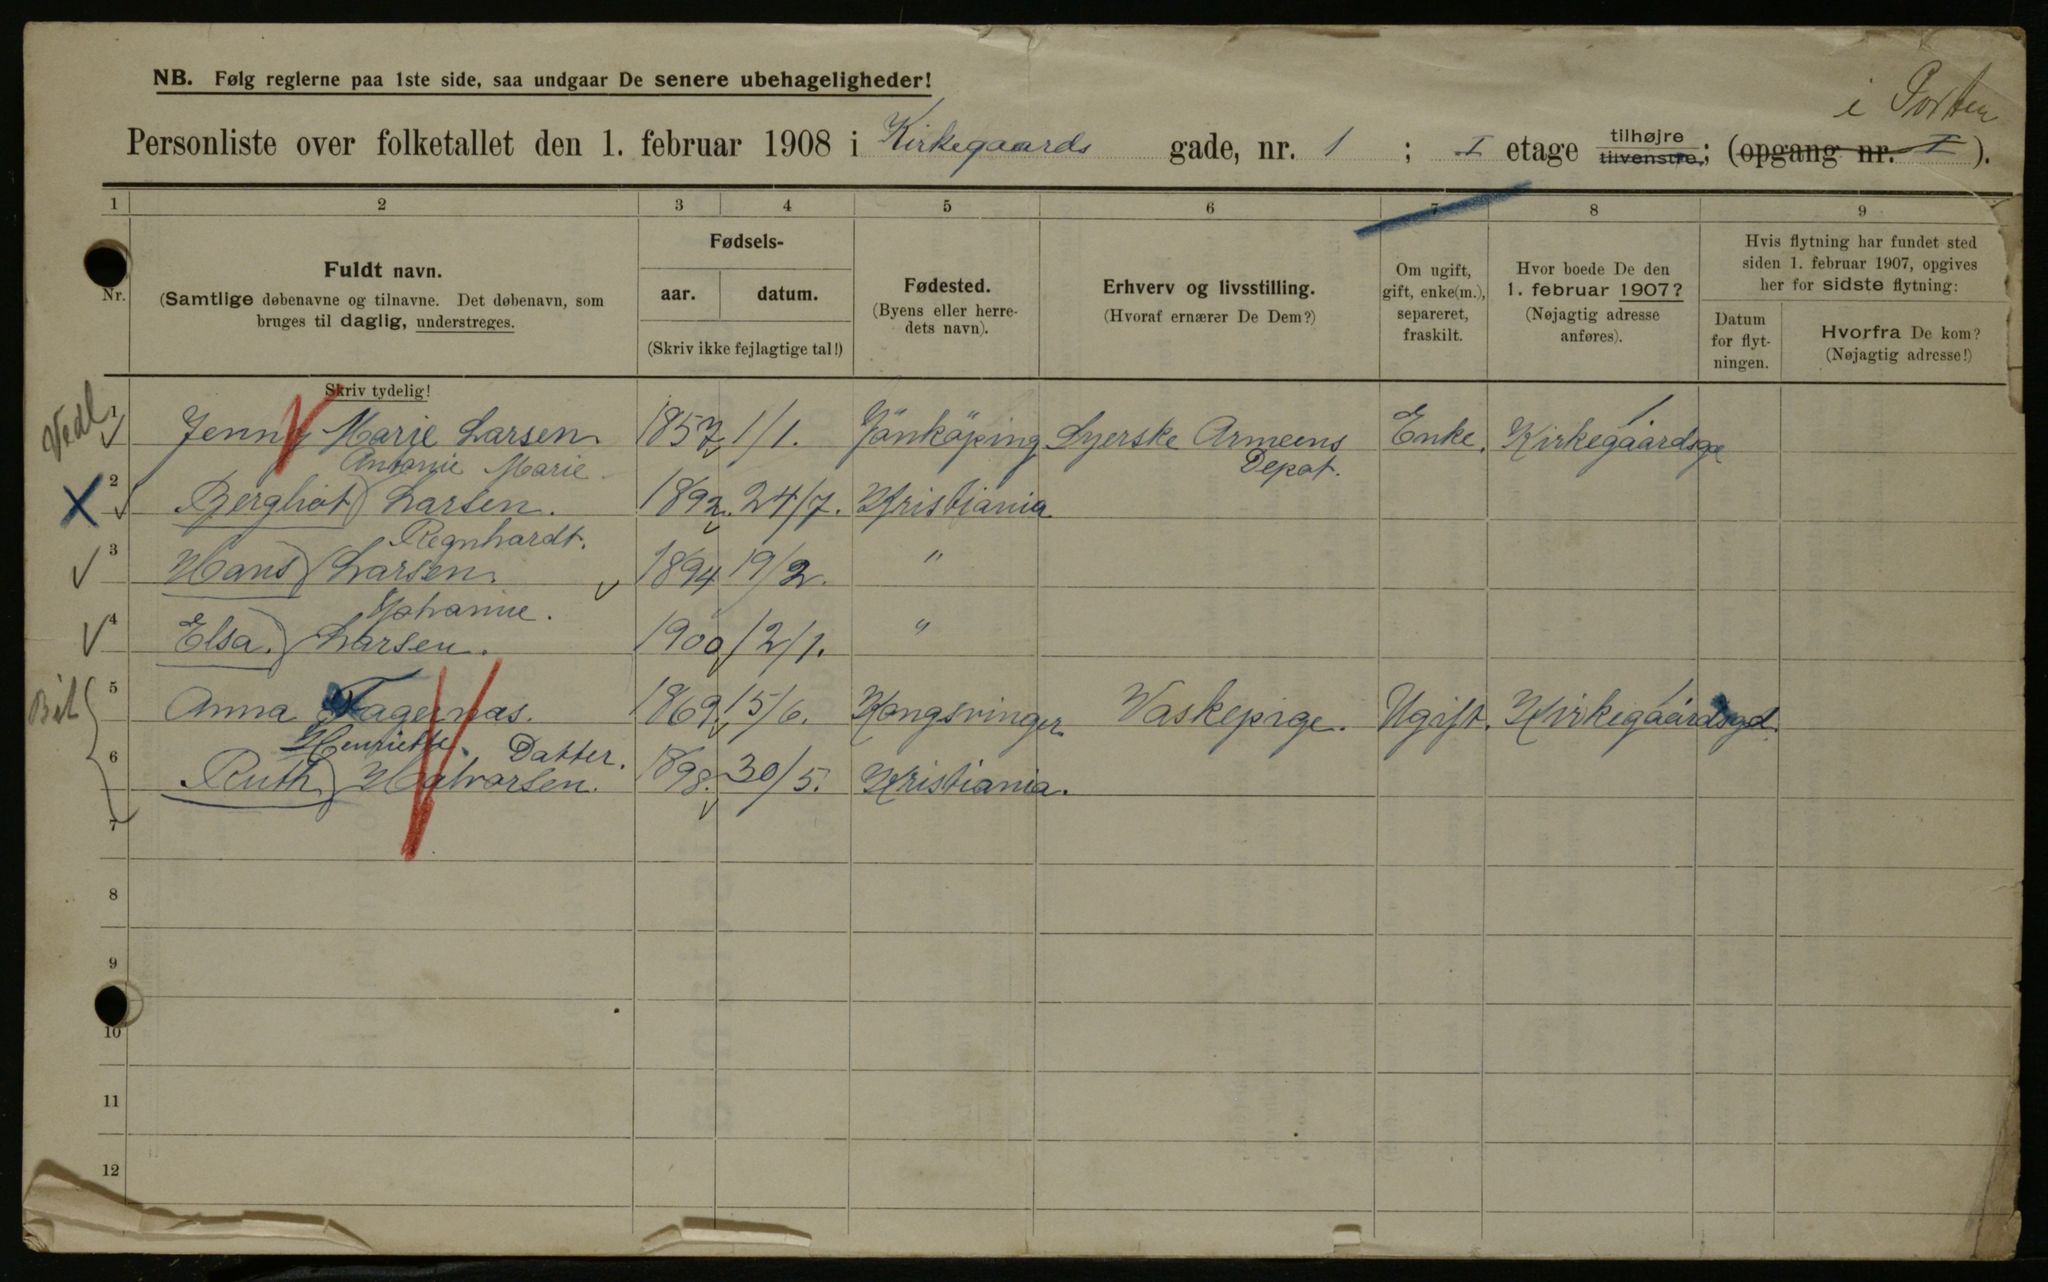 NB. Følg reglerne paa 1ste side, saa undgaar De senere ubehageligheder!
i Porten
Personliste over folketallet den 1. februar 1908 i Kirkegaards gade, nr. 1 ; I etage tilhøjre tilvenstre; (opgang nr. I ).
1 2 3 4 5 6 7 8 9
Nr.
Fuldt navn.
(Samtlige døbenavne og tilnavne. Det døbenavn, som
bruges til daglig, understreges.
Skriv tydelig!
Fødsels-
aar. datum.
(Skriv ikke fejlagtige tal!)
Fødested.
(Byens eller herre-
dets navn).
Erhverv og livsstilling.
(Hvoraf ernærer De Dem?)
Om ugift,
gift, enke(m.),
separeret,
fraskilt.
Hvor boede De den
1. februar 1907?
(Nøjagtig adresse
anføres).
Hvis flytning har fundet sted
siden 1. februar 1907, opgives
her for sidste flytning:
Datum
for flyt-
ningen.
Hvorfra De kom?
(Nøjagtig adresse!)
1 Jenny Marie Larsen 1857 1/1. Jönköping Syerske Armeens Enke. Kirkegaardsge 1
Depot.
Antonie Marie.
2 Bergliot) Larsen. 1892. 24/7. Kristiania
Regnhardt.
3 Hans) Larsen. 1894 19/2. "
Johanne.
4 Elsa.) Larsen. 1900 12/1. "
5 Anna Fagernas. 1869. 15/6. Kongsvinger. Vaskepige. Ugift. Kirkegaardsgd. 1
Henriette. Datter.
6 Ruth) Halvorsen. 1898. 30/5. Kristiania.
7
8
9
10
11
12